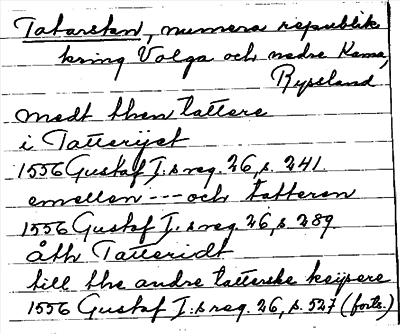 Tatarstan, numera republik
kring Volga och nedre Kama,
Ryssland
medt then tattere
i Tatterijet
1556 Gustaf I:s reg. 26, s. 241.
emellan --- och tatteren
1556 Gustaf I:s reg. 26, s. 289.
åth Tatteridt
till the andre tatterske keijsere
1556 Gustaf I:s reg. 26, s. 527 (forts.)